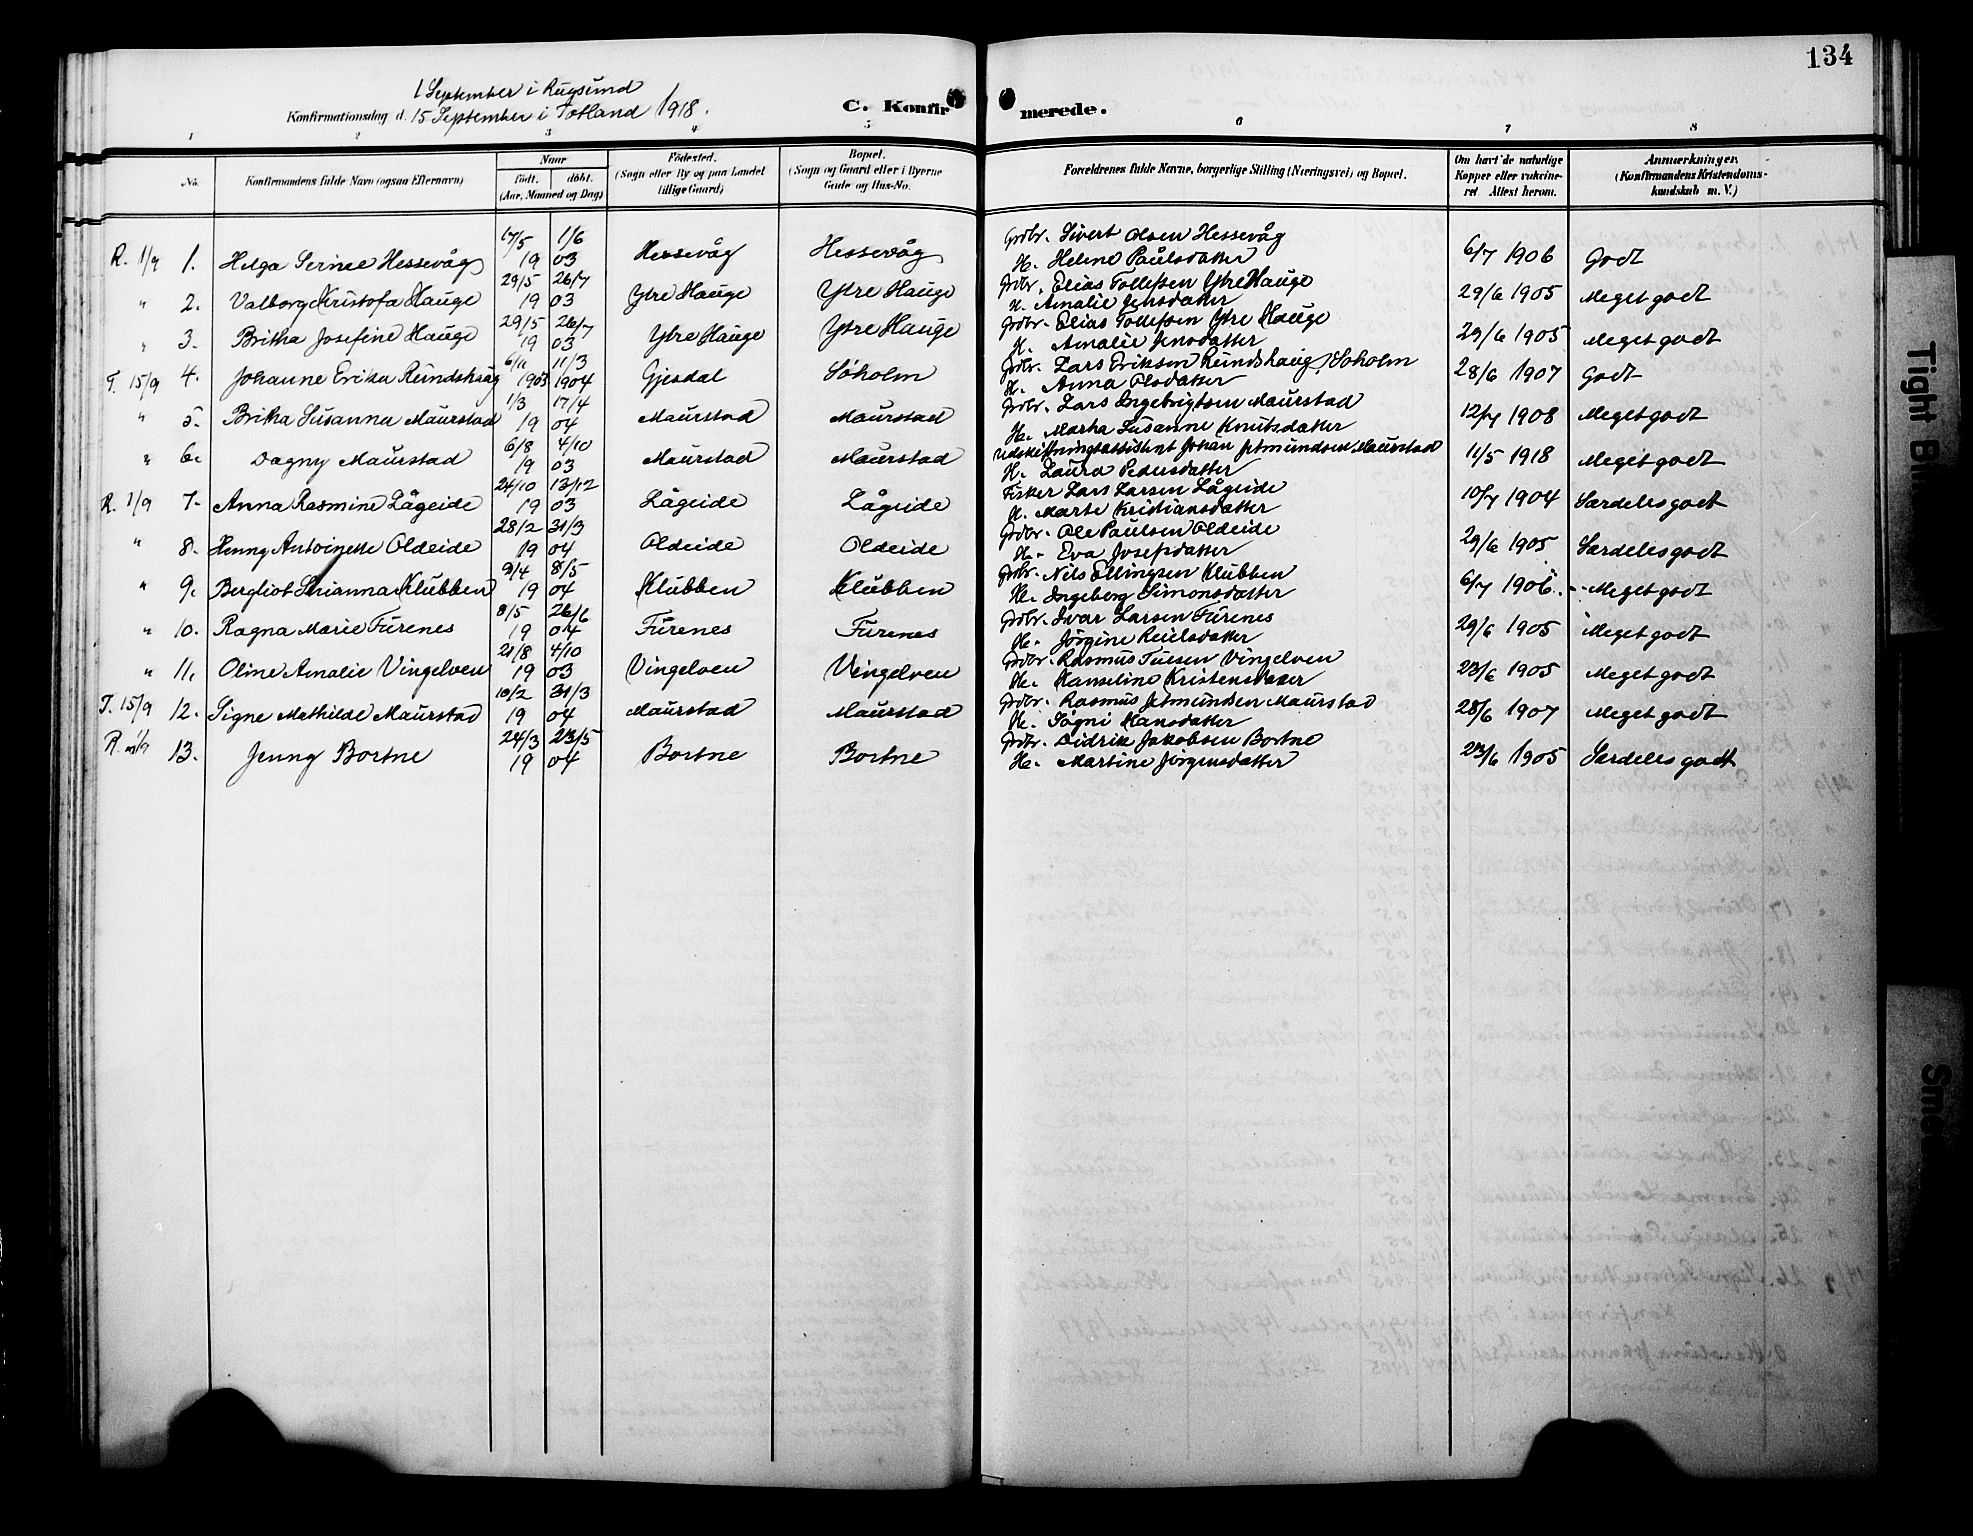 134
1 September i Rugsund
Konfirmationsdag d. 15 September i Totland 1918.
C. Konfirmerede.
1 2 3 4 5 6 7 8
No. Konfirmandens fulde Navn (ogsaa Efternavn) Naar født. døbt. (Aar, Maaned og Dag) Fødested. (Sogn eller By og paa Landet tillige Gaard) Bopæl. (Sogn og Gaard eller i Byerne Gade og Hus-No. Forældrenes fulde Navne, borgerlige Stilling (Næringsvei) og Bopæl. Om havt de naturlige Kopper eller vakcineret Attest herom. Anmærkninger. (Konfirmandens Kristendomskundskab m. V.)
R. 1/9 1. Helga Serine Hessevåg 17/5 1/6 19 03 Hessevåg Hessevåg Grdbr. Sivert Olsen Hessevåg 6/7 1906 Godt
H. Heline Paulsdatter
" 2. Valborg Kristofa Hauge 29/5 26/7 19 03 Ytre Hauge Ytre Hauge Grdbr. Elias Tollefsen Ytre Hauge 29/6 1905 Meget godt
H. Amalie Jensdatter
" 3. Britha Josefine Hauge 29/5 26/7 19 03 Ytre Hauge Ytre Hauge Grdbr. Elias Tollefsen Ytre Hauge 29/6 1905 Meget godt
H. Amalie Jensdatter
T. 15/9 4. Johanne Erika Rundshaug 6/11 11/3 1903 1904 Gjesdal Søholm Grdbr. Lars Eriksen Rundshaug, Søholm 28/6 1907 Godt
H. Anna Olsdatter
" 5. Britha Susanna Maurstad 1/3 17/4 19 04 Maurstad Maurstad Grdbr. Lars Ingebrigtsen Maurstad 12/7 1908 Meget godt
H. Martha Susanne Knutsdatter
" 6. Dagny Maurstad 6/8 4/10 19 03 Maurstad Maurstad Udskiftningsassistent Johan Jetmundsen Maurstad 11/5 1918 Meget godt
H. Laura Pedersdatter
R. 1/9 7. Anna Rasmine Lågeide 24/10 13/12 19 03 Lågeide Lågeide Fisker Lars Larsen Lågeide 10/7 1904 Særdeles godt
H. Marte Kristiansdatter
" 8. Henny Antoinette Oldeide 28/2 31/3 19 04 Oldeide Oldeide Grdbr. Ole Paulsen Oldeide 29/6 1905 Særdeles godt
H. Eva Josefsdatter
" 9. Bergliot Klubben 3/4 8/5 19 04 Klubben Klubben Grdbr. Nils Ellingsen Klubben 6/7 1906. - Meget godt
H. Ingeborg Simonsdatter
" 10. Ragna Marie Furenes 8/5 26/6 19 04 Furenes Furenes Grdbr. Ivar Larsen Furenes 29/6 1905 Meget godt
H. Jørgine
" 11. Oline Amalie Vingelven 21/8 4/10 19 03 Vingelven Vingelven Grdbr. Rasmus Vingelven 23/6 1905 Meget godt
H. Hanseline Kristensdatter
T. 15/9 12. Signe Mathilde Maurstad 10/2 31/3 19 04 Maurstad Maurstad Grdbr. Rasmus Jetmundsen Maurstad 28/6 1907 Meget godt
H. Søgni Hansdatter
R. 13. Jenny Bortne 24/3 23/5 19 04 Bortne Bortne Grdbr. Didrik Jakobsen Bortne 23/6 1905 Særdeles godt
H. Martine Jørgensdatter
Tight Bi
Sm